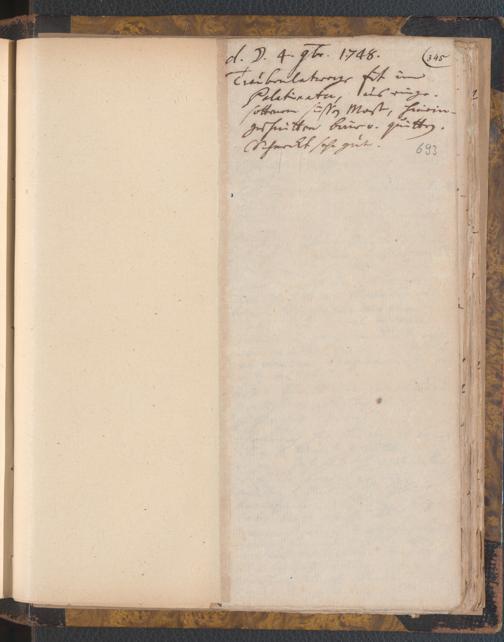 d. D. 4. 9br. 1748. 345
Traubenlatwerge fit im
Palatinatu, aus einge-
sottenem süssen Most, hinein-
geschnitten birn u. quitten.
Schmeckt sehr gut. 693